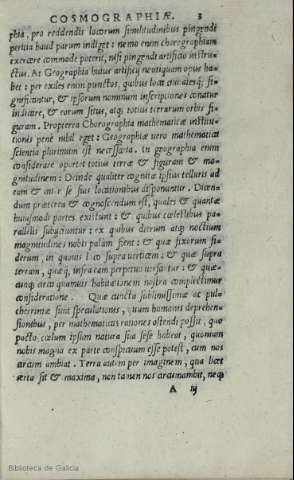 COSMOGRAPHIÆ. 3
phia, pro reddendis locorum similitudinibus pingendi
peritia haud parum indiget: nemo enim chorographiam
exercere commode poterit, nisi pingendi artificio instru-
ctus. At Geographia huius artificij neutiquam opus ha-
bet: per exiles enim punctos, quibus loca quæque si-
gnificantur, & ipsorum nominum inscriptiones conatur
indicare, & eorum situs, atque totius terrarum orbis fi-
guram. Propterea Chorographia mathematicæ institu-
tionis penè nihil eget: Geographiæ uero mathematicæ
scientia plurimum est necessaria. In geographia enim
considerare oportet totius terræ & figuram & ma-
gnitudinem: Deinde qualiter cognitæ ipsius telluris ad
eam & inter se sius locationibus disponuntur. Dicen-
dum præterea & cognoscendum est, quales & quantæ
huiusmodi partes existunt: & quibus cœlestibus pa-
rallelis subijciuntur: ex quibus dierum atque noctium
magnitudines nobis palàm fient: & quæ fixorum si-
derum, in quouis loco supra uerticem: & quæ supra
terram, quæque infra eam perpetuo uersantur: & quæ-
cunque circa quamuis habitationem nostra complectimur
consideratione. Quæ cuncta sublimissimæ ac pul-
cherrimæ sunt speculationes, quum humanis deprehen-
sionibus, per mathematicas rationes ostendi possit, quo
pacto cœlum ipsum natura sua sese habeat, quoniam
nobis magna ex parte conspicuum esse potest, cum nos
circùm ambiat. Terra autem per imaginem, quæ licet
uera sit & maxima, non tamen nos circumambit, neque
A iij
Biblioteca de Galicia